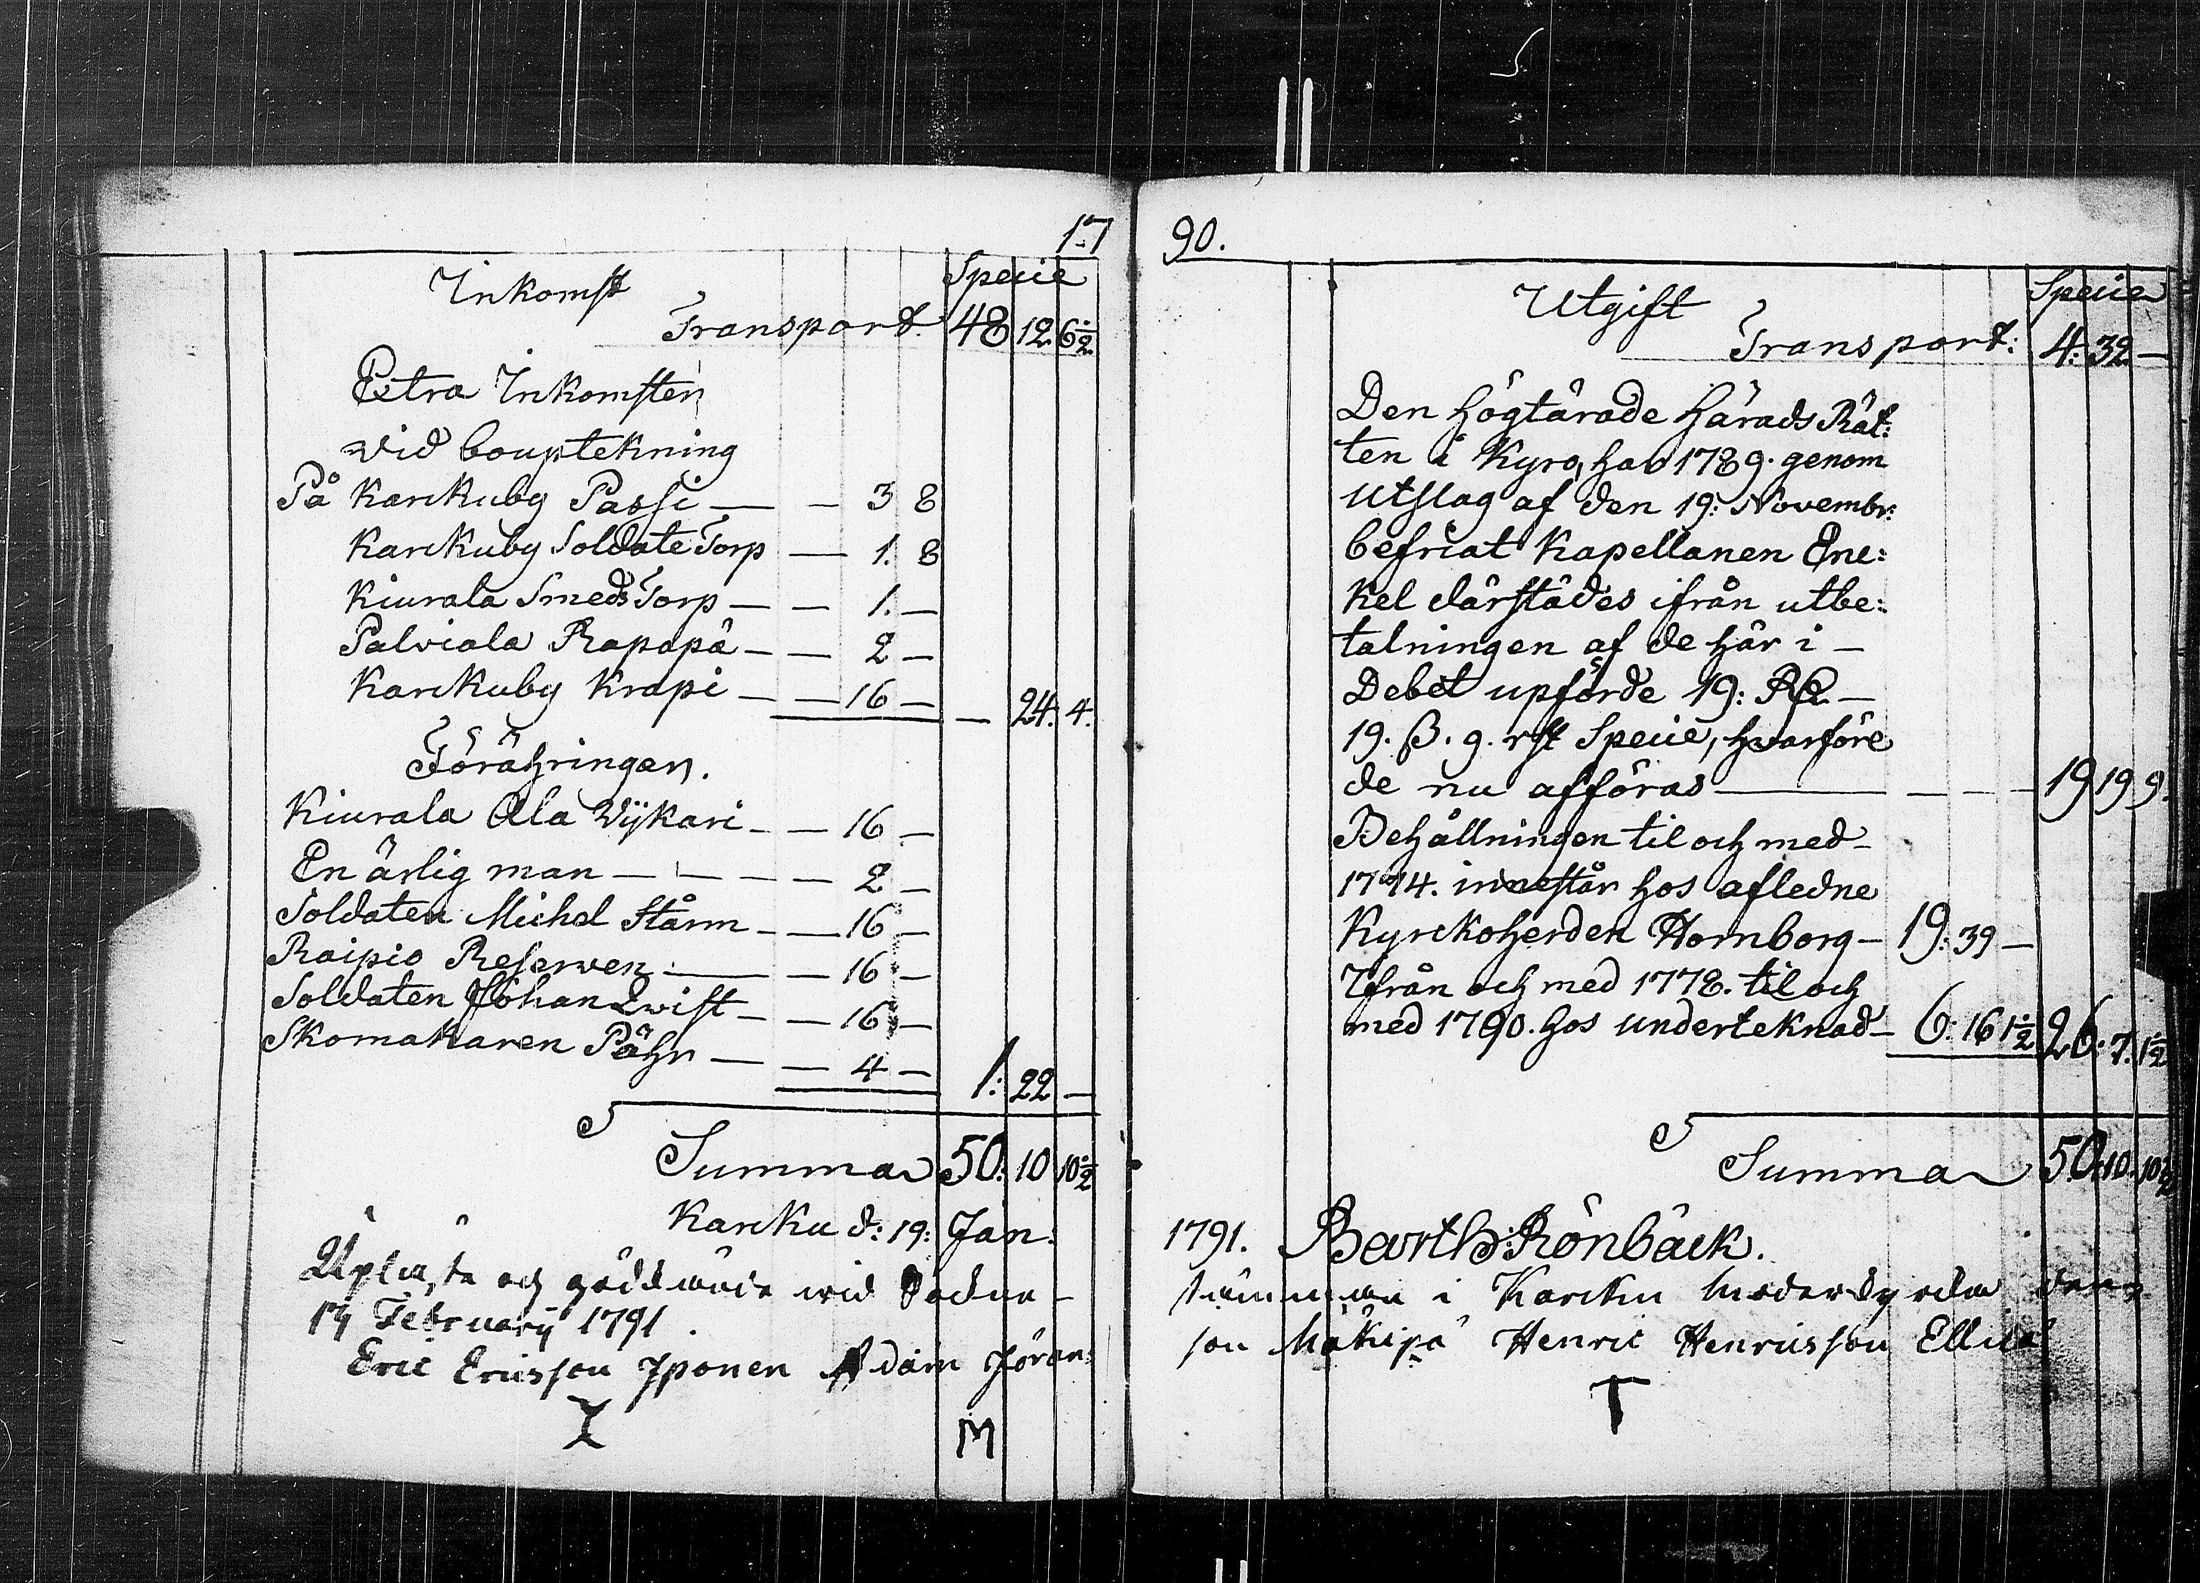 17
Inkomst
Specie
Transport. 48 12. 6 1/2.
Extra Inkomsten
vid bouptekning
På Karckuby Passi — — 3 8
Karckuby Soldate Torp — 1. 8
Kiurala Smeds Torp — — 1. —
Palviala Rapapä — — 2 —
Karckuby Krapi — — 16 — — 24. 4.
Förähringar.
Kiurala Ala Wÿkari — — 16 —
En ärlig man — — — — 2 —
Soldaten Michel Stårm — — 16 —
Raipio Reserven — — 16 —
Soldaten Johan Qwist — — 16 —
Skomakaren Påhr — — 4 — 1: 22 —
Summa 50: 10 10 1/2
Karcku d: 19: Jan:
Uplästa och godkände wid Sockne-
17 February 1791.
Eric Ericsson Jponen Adam Jöran:
M
90.
Utgift
Specie
Transport: 4: 32 —
Den Högtärade Härads Rät:
ten i Kyro, har 1789. genom
Utslag af den 19: Novembr:
befriat Kapellanen Ene:
kel därstädes ifrån utbe:
talningen af de här i —
Debet upförde 19: Rd —
19. ß. 9. rst Specie, hvarföre
de nu afföras — — — 19 19 9.
Behållningen til och med
1774. innestår hos afledne
Kyrckoherden Hornborg — 19: 39 —
Ifrån och med 1778. til och
med 1790. hos underteknad — 6: 16 1 1/2 26. 7. 1 1/2
Summa 50. 10. 10 1/2
1791. Barth: Rönbäck.
stämman i Karcku Moderkyrcka
son Mäkipä Henric Henricsson Ellilä
T